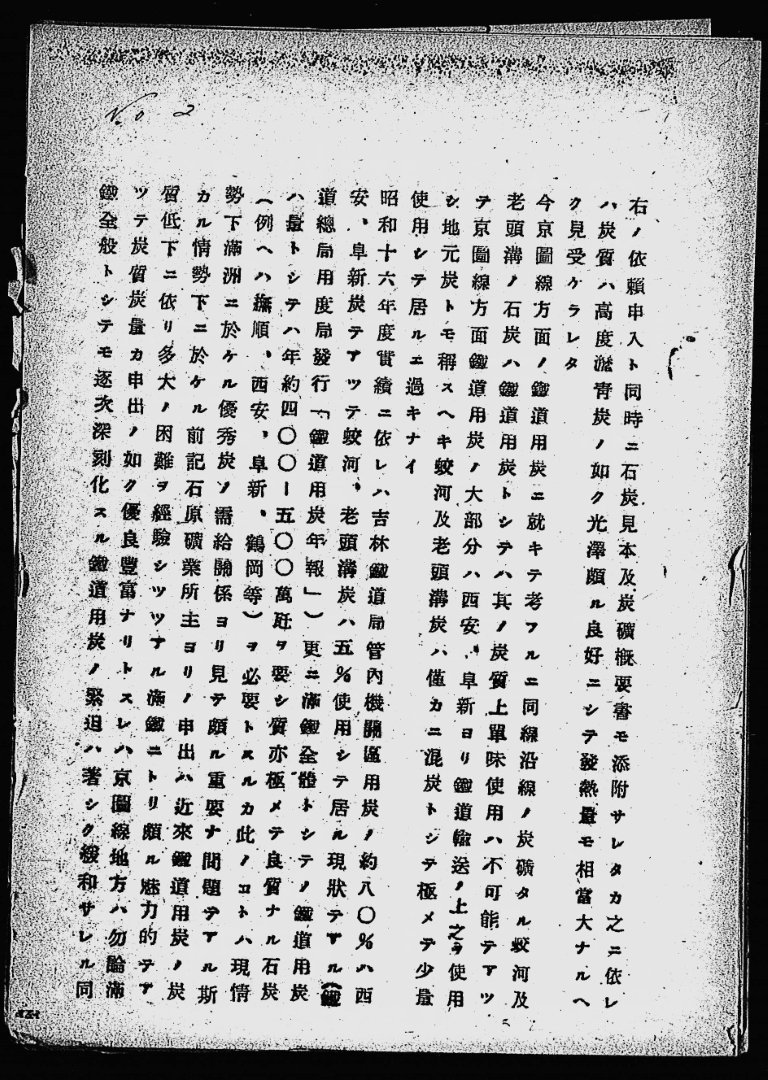 No 2
右ノ依賴申入ト同時ニ石炭見本及炭礦槪要書モ添附サレタカ之ニ依レ
ハ炭質ハ高度瀝靑炭ノ如ク光澤頗ル良好ニシテ發熱量モ相當大ナルヘ
ク見受ケラレタ
今京圖線方面ノ鐵道用炭ニ就キテ考フルニ同線沿線ノ炭礦タル蛟河及
老頭溝ノ石炭ハ鐵道用炭トシテハ其ノ炭質上單味使用ハ不可能テアツ
テ京圖線方面鐵道用炭ノ大部分ハ西安、阜新ヨリ鐵道輸送ノ上之ヲ使用
シ地元炭トモ稱スヘキ蛟河及老頭溝炭ハ僅カニ混炭トシテ極メテ少量
使用シテ居ルニ過キナイ
昭和十六年度實績ニ依レハ吉林鐵道局管內機關區用炭ノ約八〇%ハ西
安、阜新炭テアツテ蛟河、老頭溝炭ハ五%使用シテ居ル現狀テアル(鐵
道總局用度局發行「鐵道用炭年報」)更ニ滿鐵全體トシテノ鐵道用炭
ハ量トシテハ年約四〇〇ー五〇〇萬瓲ヲ要シ質亦極メテ良質ナル石炭
(例ヘハ撫順、西安、阜新、鶴岡等)ヲ必要トスルカ此ノコトハ現情
勢下滿洲ニ於ケル優秀炭ノ需給關係ヨリ見テ頗ル重要ナ問題テアル斯
カル情勢下ニ於ケル前記石原礦業所主ヨリノ申出ハ近來鐵道用炭ノ炭
質低下ニ依リ多大ノ困難ヲ經驗シツツアル滿鐵ニトリ頗ル魅力的テア
ツテ炭質炭量カ申出ノ如ク優良豐富ナリトスレハ京圖線地方ハ勿論滿
鐵全般トシテモ逐次深刻化スル鐵道用炭ノ緊迫ハ著シク緩和サレル同